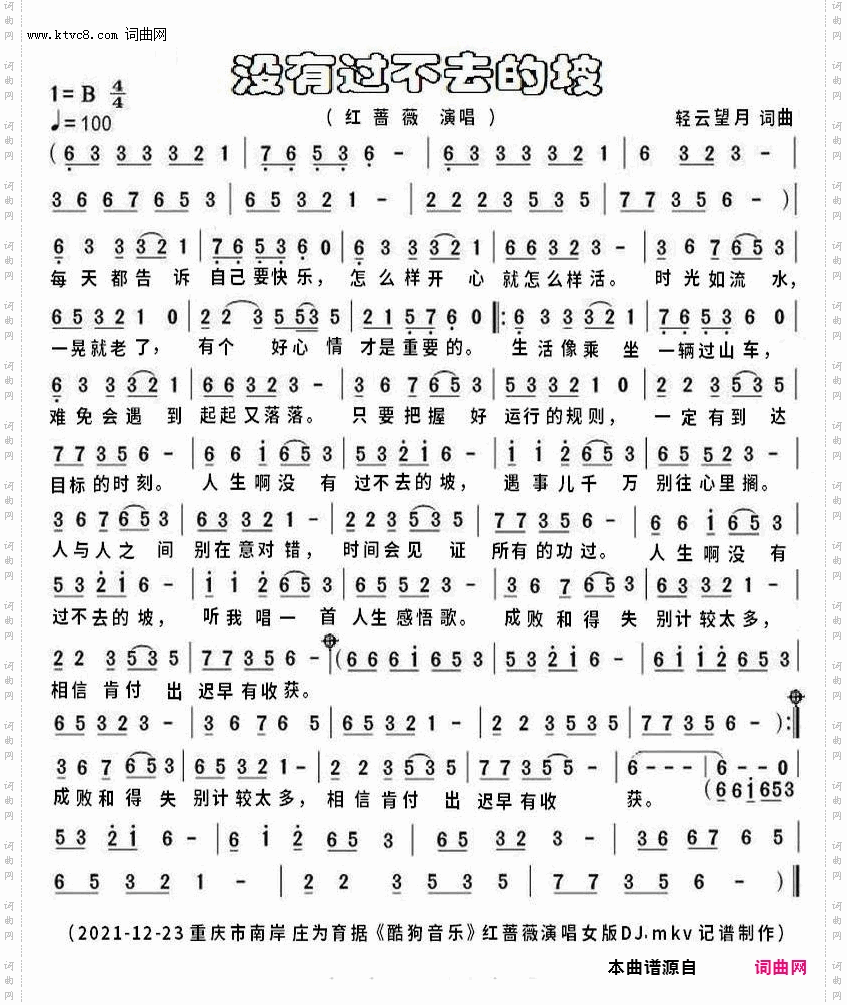 www.ktvc8.com 词曲网
没有过不去的坡
1=B 4/4
♩=100
(红蔷薇 演唱)
轻云望月 词曲
(6 3 3 3 3 2 1 | 7 6 5 3 6 - | 6 3 3 3 3 2 1 | 6 3 2 3 - |
3 6 6 7 6 5 3 | 6 5 3 2 1 - | 2 2 2 3 5 3 5 | 7 7 3 5 6 - )|
6 3 3 3 3 2 1 | 7 6 5 3 6 0 | 6 3 3 3 3 2 1 | 6 6 3 2 3 - | 3 6 7 6 5 3 |
每天都告诉 自己要快乐, 怎么样开心 就怎么样活。 时光如流水,
6 5 3 2 1 0 | 2 2 3 5 5 3 5 | 2 1 5 7 6 0 ‖: 6 3 3 3 3 2 1 | 7 6 5 3 6 0 |
一晃就老了, 有个好心情 才是重要的。 生活像乘坐 一辆过山车,
6 3 3 3 3 2 1 | 6 6 3 2 3 - | 3 6 7 6 5 3 | 5 3 3 2 1 0 | 2 2 3 5 3 5 |
难免会遇到 起起又落落。 只要把握好 运行的规则, 一定有到达
7 7 3 5 6 - | 6 6 i 6 5 3 | 5 3 2 i 6 - | i i 2 6 5 3 | 6 5 3 2 3 - |
目标的时刻。 人生啊没有 过不去的坡, 遇事儿千万 别往心里搁。
3 6 7 6 5 3 | 6 3 3 2 1 - | 2 2 3 5 3 5 | 7 7 3 5 6 - | 6 6 i 6 5 3 |
人与人之间 别在意对错, 时间会见证 所有的功过。 人生啊没有
5 3 2 i 6 - | i i 2 6 5 3 | 6 5 3 2 3 - | 3 6 7 6 5 3 | 6 5 3 2 1 - |
过不去的坡, 听我唱一首 人生感悟歌。 成败和得失 别计较太多,
2 2 3 5 3 5 | 7 7 3 5 6 - |(6 6 6 i 6 5 3 | 5 3 2 i 6 - | 6 i i 2 6 5 3 |
相信肯付出 迟早有收获。
6 5 3 2 3 - | 3 6 7 6 5 | 6 5 3 2 1 - | 2 2 3 5 3 5 | 7 7 3 5 6 - ):‖
3 6 7 6 5 3 | 6 5 3 2 1 - | 2 2 3 5 3 5 | 7 7 3 5 5 - | 6 - - - | 6 - - 0
成败和得失 别计较太多, 相信肯付出 迟早有收 获。 (6 6 i 6 5 3
5 3 2 i 6 - | 6 i 2 6 5 3 | 6 5 3 2 3 - | 3 6 6 7 6 5 |
6 5 3 2 1 - | 2 2 3 5 3 5 | 7 7 3 5 6 - )‖
(2021-12-23 重庆市南岸 庄为育据《酷狗音乐》红蔷薇演唱女版DJ.mkv 记谱制作)
本曲谱源自 词曲网